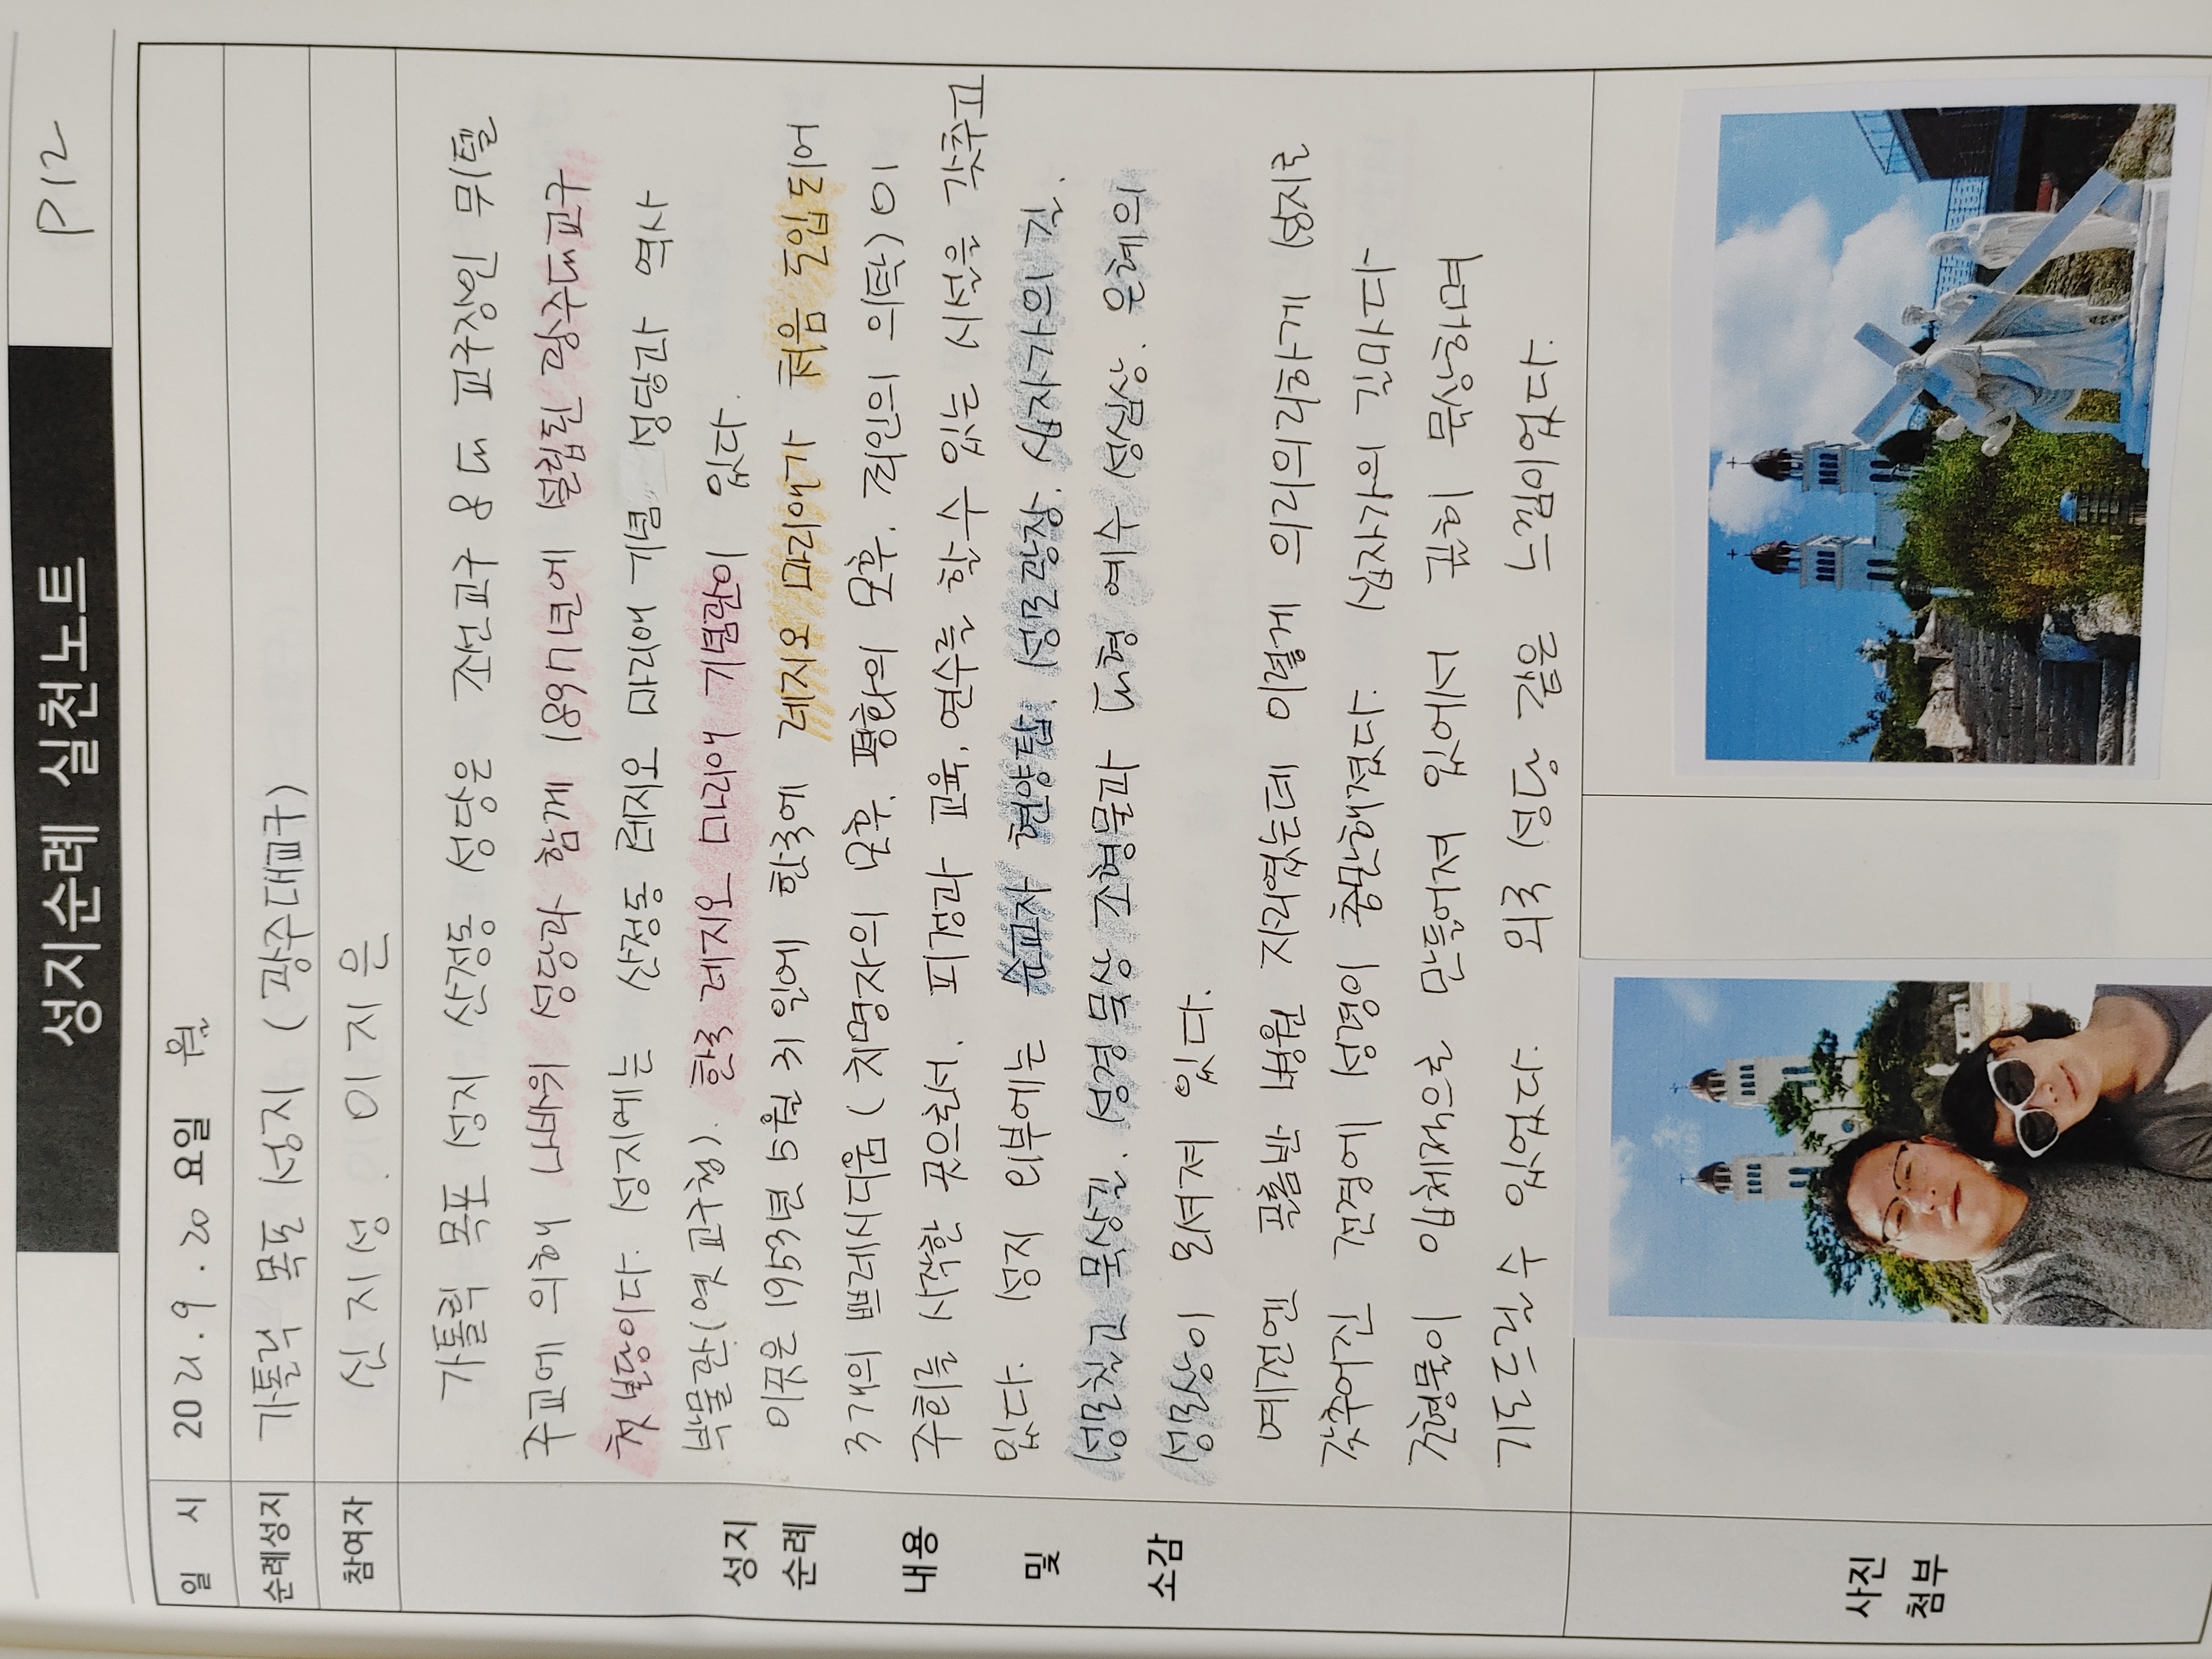 성지순례 실천노트 P12
일 시 2021.9.20 요일 월
순례성지 가톨릭 목포 성지 (광주대교구)
참여자 신지성. 이지은
성지 순례 내용 및 소감
가톨릭 목포 성지 산정동 성당은 조선교구 8대 교구장인 뮈텔
주교에 의해 나바위 성당과 함께 1897년에 설립된 광주대교구
첫 본당이다. 성지에는 산정동 레지오 마리애 기념 성당과 역사
박물관(옛 교구청). 한국 레지오 마리애 기념관이 있다.
이곳은 1953년 5월 31일에 한국에 레지오 마리애가 처음 도입되어
3개의 쁘레시디움 (치명자의 모후. 평화의 모후. 죄인의 의탁)이
주회를 시작한 곳으로서. 피정과 교육, 연수를 할 수 있는 시설을 갖추고
있다. 성지 외부에는 순교자 현양탑. 성모광장. 십자가의 길.
성모칠고 묵상길. 성경 묵상 조형물과 대형 예수 성심상. 은혜의
성모상이 모셔져 있다.
예전엔 골롬반 병원 자리였는데 이렇게 의리의리하게 성지로
갖추어진 전경에 성령이 충만해졌다. 십자가의 길마다
조형물이 입체적으로 만들어져 있어서 깊히 묵상하며
기도드릴 수 있었다. 외국 성당 같은 느낌이었다.
사진
첨부